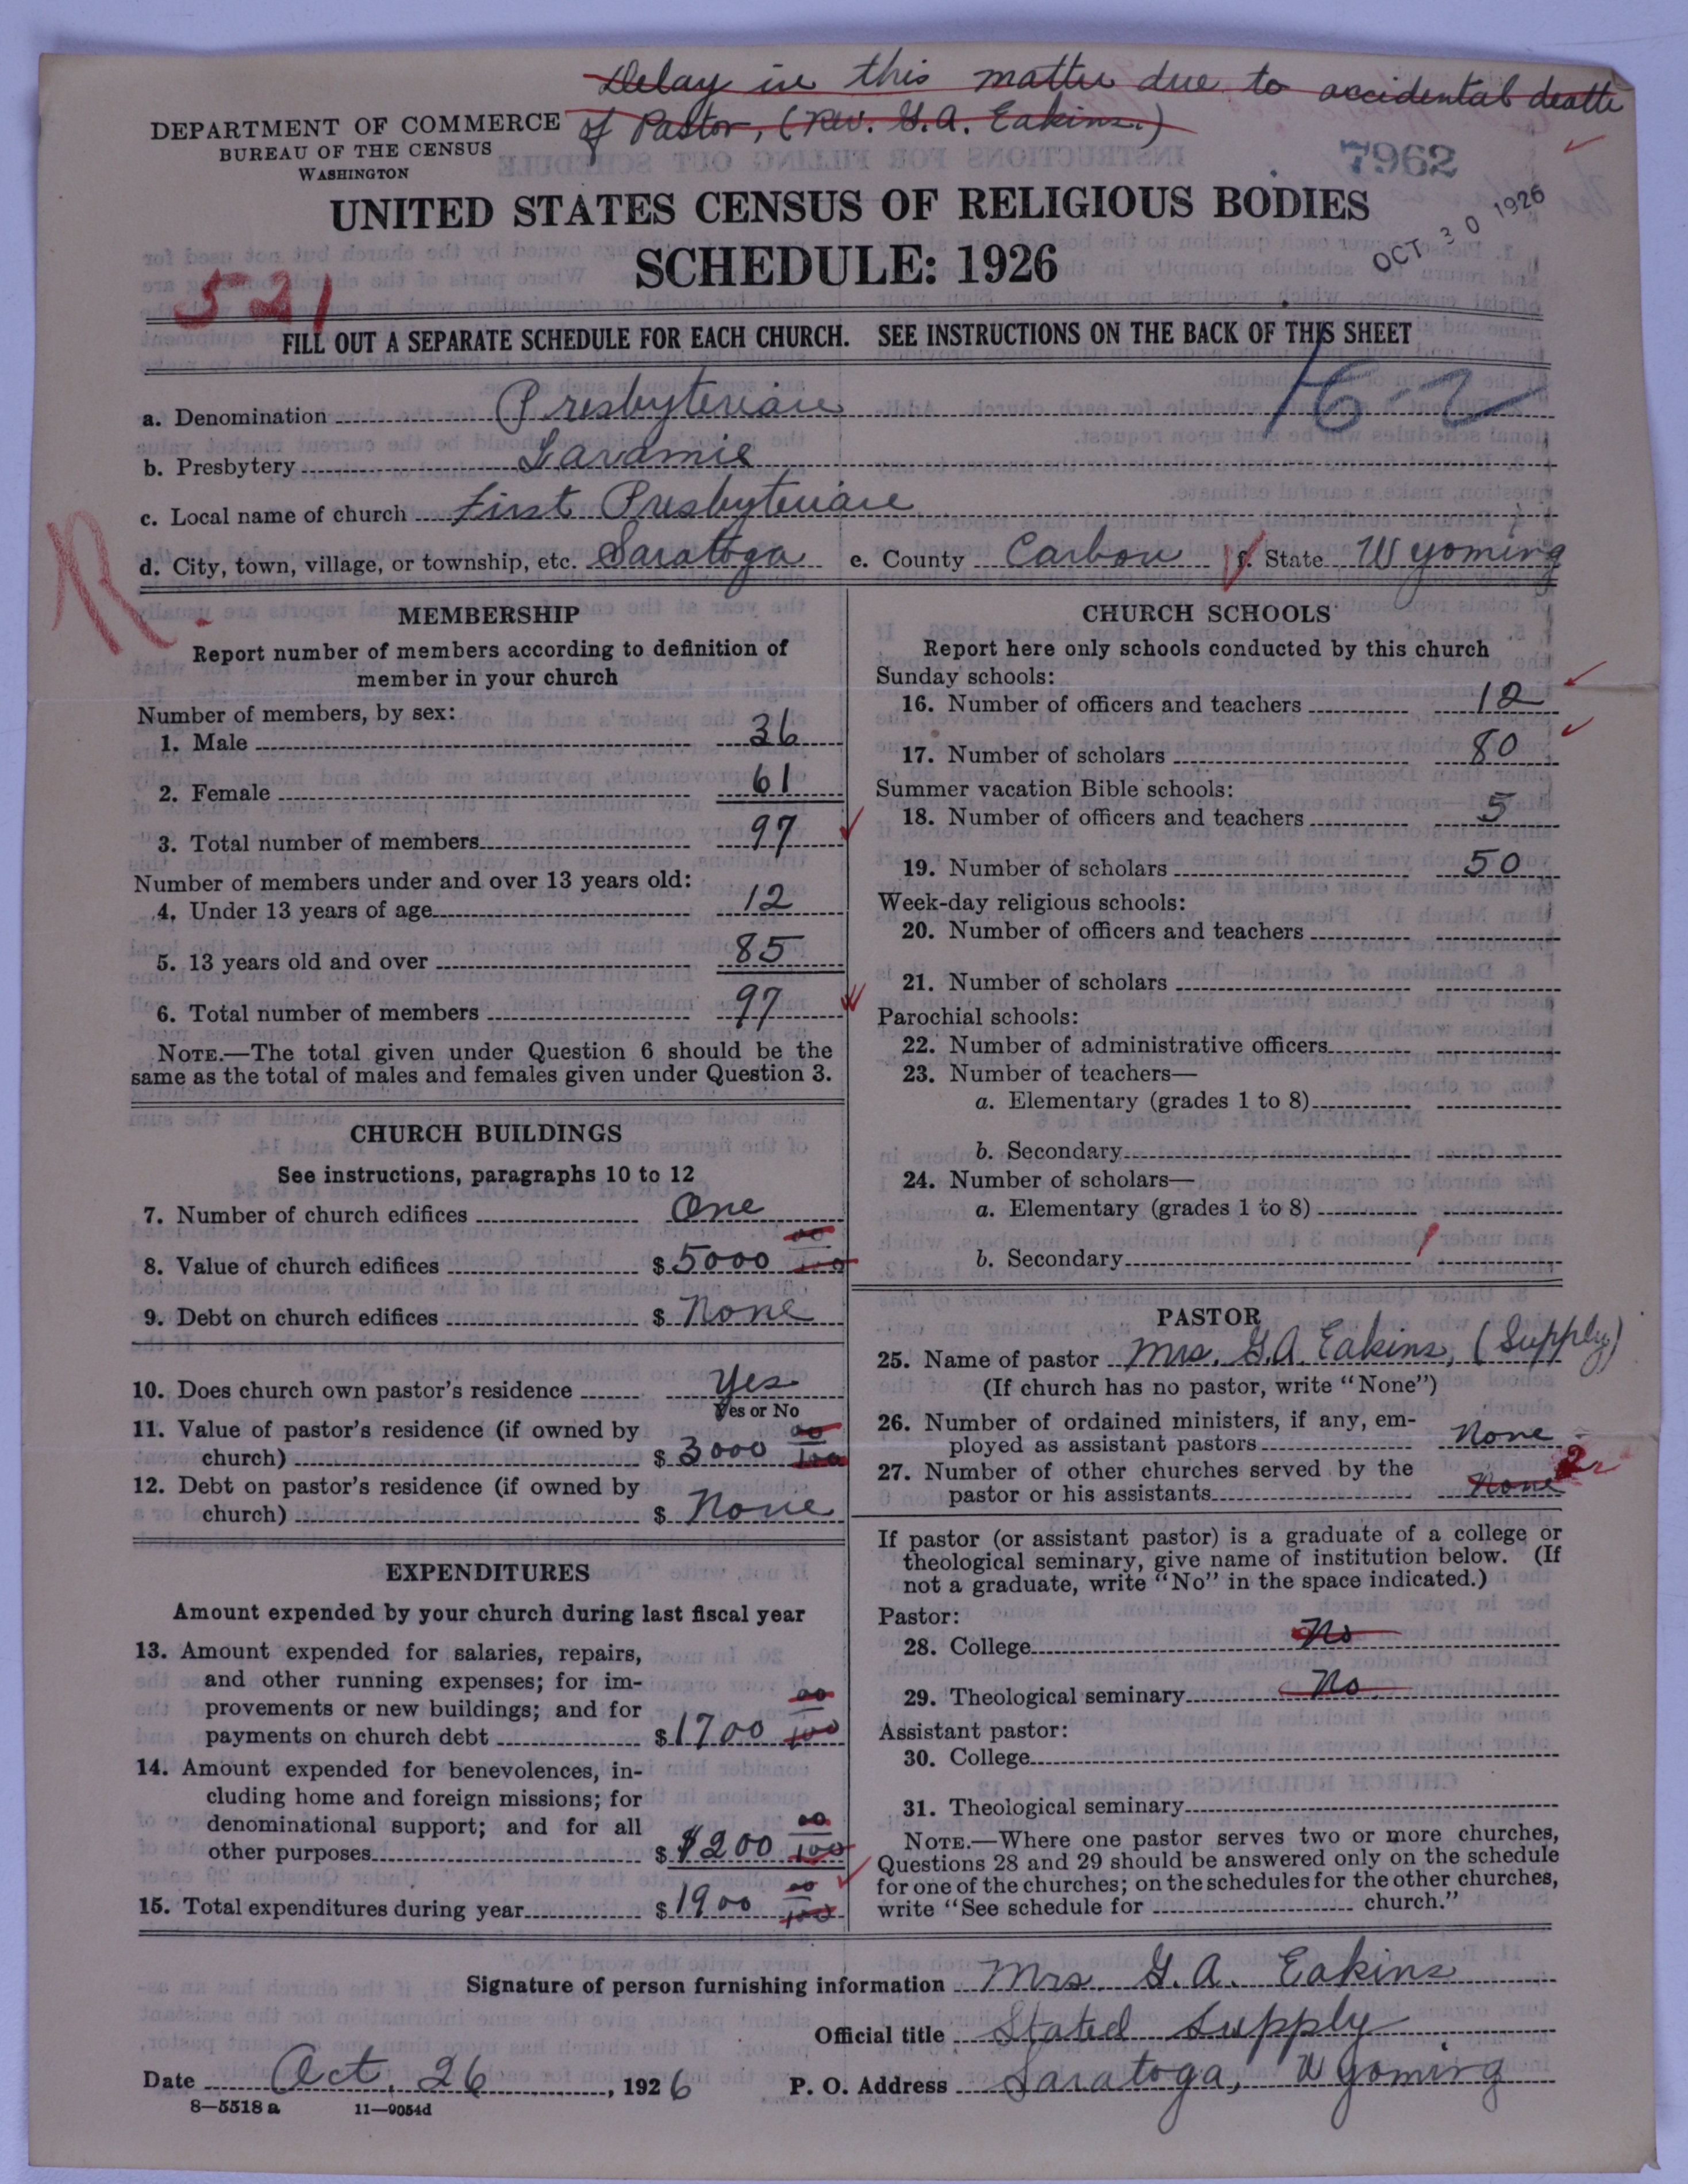 Delay in this matter due to accidental death
of Pastor, (Rev. G.A. Eakins.)
DEPARTMENT OF COMMERCE
BUREAU OF THE CENSUS
WASHINGTON
7962
OCT 30 1926
UNITED STATES CENSUS OF RELIGIOUS BODIES
SCHEDULE: 1926
521
FILL OUT A SEPARATE SCHEDULE FOR EACH CHURCH. SEE INSTRUCTIONS ON THE BACK OF THIS SHEET
16-2
a. Denomination Presbyterian
b. Presbytery Laramie
c. Local name of church First Presbyterian
d. City, town, village, or township, etc. Saratoga e. County Carbon f. State Wyoming
R
MEMBERSHIP
Report number of members according to definition of
member in your church
Number of members, by sex:
1. Male 36
2. Female 61
3. Total number of members 97
Number of members under and over 13 years old:
4. Under 13 years of age 12
5. 13 years old and over 85
6. Total number of members 97
NOTE.—The total given under Question 6 should be the
same as the total of males and females given under Question 3.
CHURCH BUILDINGS
See instructions, paragraphs 10 to 12
7. Number of church edifices One
8. Value of church edifices $ 5000 00/100
9. Debt on church edifices $ None
10. Does church own pastor's residence Yes
Yes or No
11. Value of pastor's residence (if owned by
church) $ 3000 00/100
12. Debt on pastor's residence (if owned by
church) $ None
EXPENDITURES
Amount expended by your church during last fiscal year
13. Amount expended for salaries, repairs,
and other running expenses; for im-
provements or new buildings; and for
payments on church debt $ 1700 00/100
14. Amount expended for benevolences, in-
cluding home and foreign missions; for
denominational support; and for all
other purposes $ $200 00/100
15. Total expenditures during year $ 1900 00/100
CHURCH SCHOOLS
Report here only schools conducted by this church
Sunday schools:
16. Number of officers and teachers 12
17. Number of scholars 80
Summer vacation Bible schools:
18. Number of officers and teachers 5
19. Number of scholars 50
Week-day religious schools:
20. Number of officers and teachers
21. Number of scholars
Parochial schools:
22. Number of administrative officers
23. Number of teachers—
a. Elementary (grades 1 to 8)
b. Secondary
24. Number of scholars—
a. Elementary (grades 1 to 8)
b. Secondary
PASTOR
25. Name of pastor Mrs. G.A. Eakins, (Supply)
(If church has no pastor, write "None")
26. Number of ordained ministers, if any, em-
ployed as assistant pastors None
27. Number of other churches served by the
pastor or his assistants None 2
If pastor (or assistant pastor) is a graduate of a college or
theological seminary, give name of institution below. (If
not a graduate, write "No" in the space indicated.)
Pastor:
28. College No
29. Theological seminary No
Assistant pastor:
30. College
31. Theological seminary
NOTE.—Where one pastor serves two or more churches,
Questions 28 and 29 should be answered only on the schedule
for one of the churches; on the schedules for the other churches,
write "See schedule for church."
Signature of person furnishing information Mrs. G. A. Eakins
Official title Stated Supply
Date Oct. 26, 1926 P. O. Address Saratoga, Wyoming
8—5518 a 11—9054d